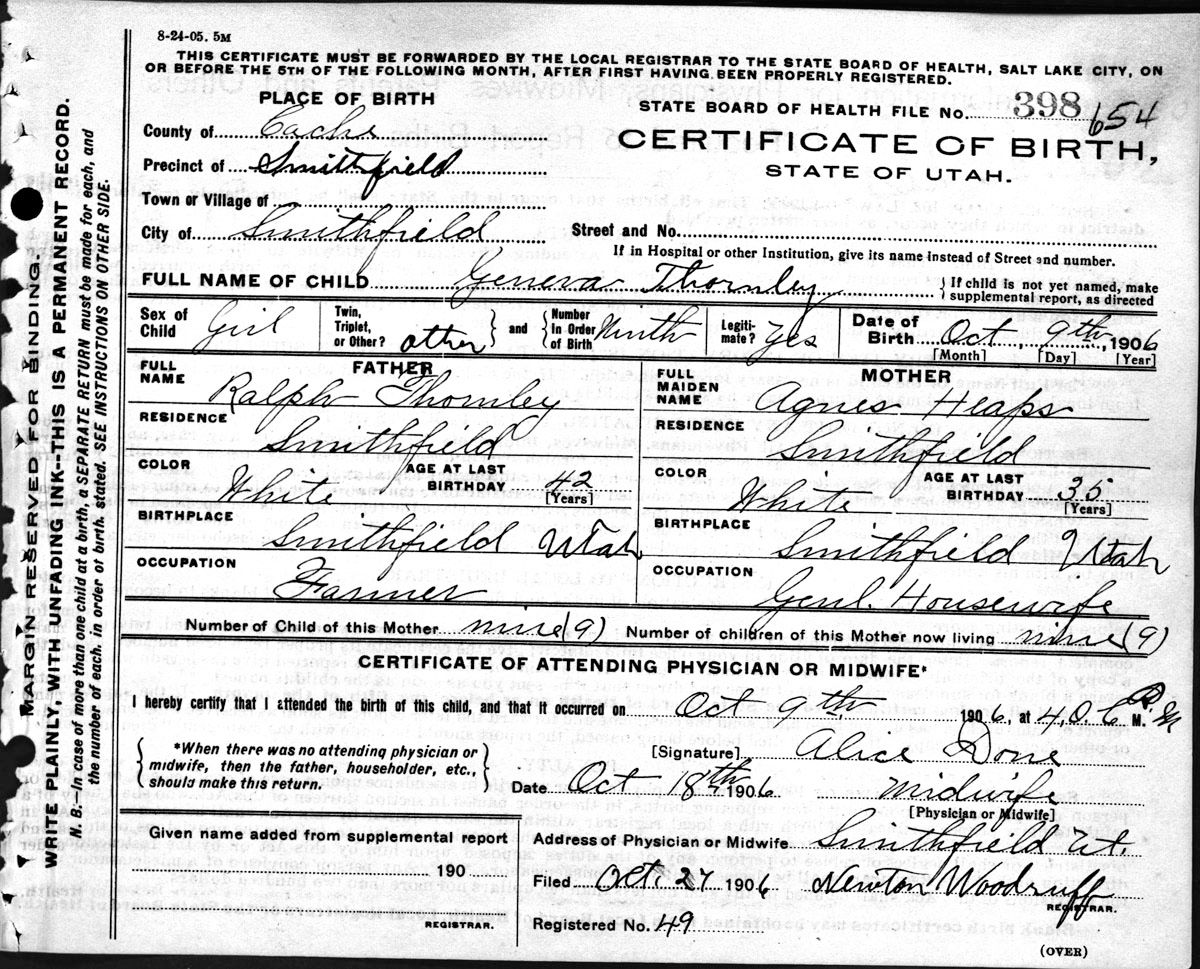 8-24-05. 5M
THIS CERTIFICATE MUST BE FORWARDED BY THE LOCAL REGISTRAR TO THE STATE BOARD OF HEALTH, SALT LAKE CITY, ON
OR BEFORE THE 5TH OF THE FOLLOWING MONTH, AFTER FIRST HAVING BEEN PROPERLY REGISTERED.
PLACE OF BIRTH
STATE BOARD OF HEALTH FILE No. 398 654
County of Cache
CERTIFICATE OF BIRTH,
Precinct of Smithfield
STATE OF UTAH.
Town or Village of
City of Smithfield, Street and No.
If in Hospital or other Institution, give its name instead of Street and number.
FULL NAME OF CHILD Geneva Thornley } If child is not yet named, make supplemental report, as directed
Sex of Child Girl Twin, Triplet, or Other? other } and { Number In Order of Birth Ninth Legiti-mate? Yes Date of Birth Oct, 9th, 1906
[Month] [Day] [Year]
FATHER
FULL NAME Ralph Thornley
RESIDENCE Smithfield
COLOR White AGE AT LAST BIRTHDAY 42
[Years]
BIRTHPLACE Smithfield Utah
OCCUPATION Farmer
MOTHER
FULL MAIDEN NAME Agnes Heaps
RESIDENCE Smithfield
COLOR White AGE AT LAST BIRTHDAY 35
[Years]
BIRTHPLACE Smithfield Utah
OCCUPATION Genl. Housewife
Number of Child of this Mother nine (9) Number of children of this Mother now living nine (9)
CERTIFICATE OF ATTENDING PHYSICIAN OR MIDWIFE*
I hereby certify that I attended the birth of this child, and that it occurred on Oct 9th 1906, at 4.0.6 P.M M.
{ *When there was no attending physician or
midwife, then the father, householder, etc.,
should make this return. }
[Signature] Alice Done
Date Oct 18th 1906 Midwife
[Physician or Midwife]
Given name added from supplemental report
190
REGISTRAR.
Address of Physician or Midwife Smithfield Ut.
Filed Oct. 27 1906 Newton Woodruff
REGISTRAR.
Registered No. 49
(OVER)
MARGIN RESERVED FOR BINDING.
WRITE PLAINLY, WITH UNFADING INK—THIS IS A PERMANENT RECORD.
N. B.—In case of more than one child at a birth, a SEPARATE RETURN must be made for each, and
the number of each, in order of birth, stated. SEE INSTRUCTIONS ON OTHER SIDE.